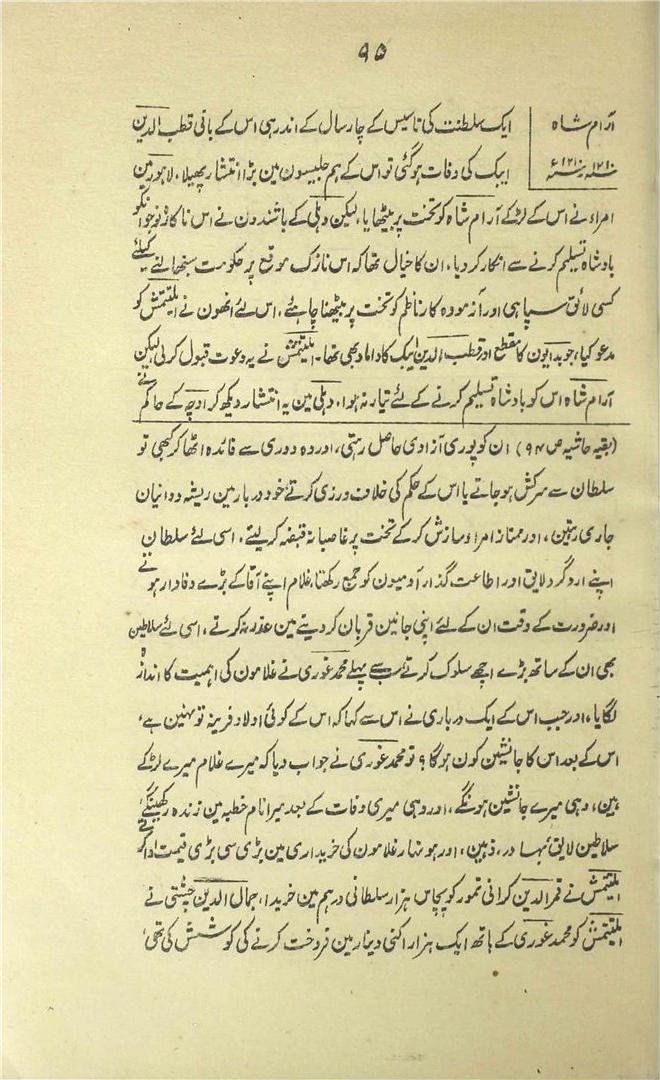 ۹۵
آرام شاہ ایک سلطنت کی تاسیس کے چار سال کے اندر ہی اس کے بانی قطب الدین
۱۲۱۰ء ایبک کی وفات ہوگئی تو اس کے ہم جلیسون مین بڑا انتشار پھیلا، لاہور مین
امراء نے اس کے لڑکے آرام شاہ کو تخت پر بیٹھایا، لیکن دہلی کے باشندون نے اس ناکارہ نوجوان کو
بادشاہ تسلیم کرنے سے انکار کر دیا، ان کا خیال تھا کہ اس نازک موقع پر حکومت سنبھالنے کیلئے
کسی لائق سپاہی اور آزمودہ کار ناظم کو تخت پر بیٹھنا چاہئے، اس لئے انھون نے التمتش کو
مدعو کیا، جو بدایون کا مقطع اور قطب الدین ایبک کا داماد بھی تھا۔ التمتش نے یہ دعوت قبول کرلی لیکن
آرام شاہ اس کو بادشاہ تسلیم کرنے کے لئے تیار نہ ہوا، دہلی مین یہ انتشار دیکھ کر اوچہ کے حاکم نے
(بقیہ حاشیہ ص ۹۴) ان کو پوری آزادی حاصل رہتی، اور وہ دوری سے فائدہ اٹھا کر کبھی تو
سلطان سے سرکش ہو جاتے یا اس کے حکم کی خلاف ورزی کرتے، خود دربار مین ریشہ دوانیان
جاری رہتین، اور ممتاز امراء سازش کر کے تخت پر غاصبانہ قبضہ کر لیتے، اسی لئے سلطان
اپنے ارد گرد لایق اور اطاعت گذار آدمیون کو جمع رکھتا، غلام اپنے آقا کے بڑے وفادار ہوتے
اور ضرورت کے وقت ان کے لئے اپنی جانین قربان کر دینے مین عذر نہ کرتے، اسی لئے سلاطین
بھی ان کے ساتھ بڑے اچھے سلوک کرتے، سب سے پہلے محمد غوری نے غلامون کی اہمیت کا اندازہ
لگایا، اور جب اس کے ایک درباری نے اس سے کہا کہ اس کے کوئی اولاد فرینہ تو نہین ہے،
اس کے بعد اس کا جانشین کون ہوگا؟ تو محمد غوری نے جواب دیا کہ میرے غلام میرے لڑکے
ہین، وہی میرے جانشین ہونگے، اور وہی میری وفات کے بعد میرا نام خطبہ مین زندہ رکھینگے،
سلاطین لایق، بہادر، ذہین، اور ہونہار غلامون کی خریداری مین بڑی سی بڑی قیمت ادا کرتے
التمتش نے قمر الدین کرانی تمور کو پچاس ہزار سلطانی درہم مین خریدا، جمال الدین چشتی نے
التمتش کو محمد غوری کے ہاتھ ایک ہزار رکنی دینار مین فروخت کرنے کی کوشش کی تھی،